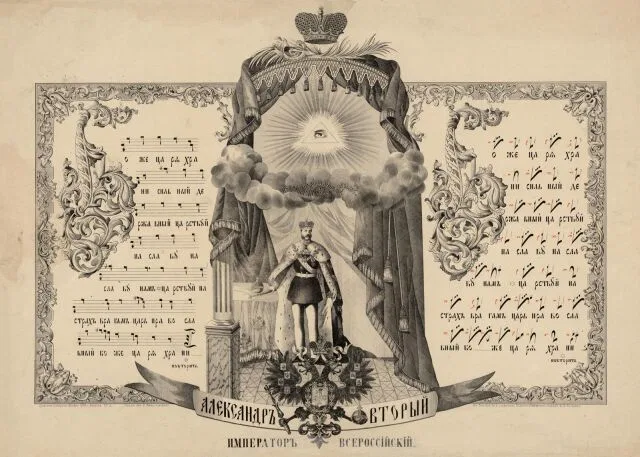 о же ца рѧ хра
ни силь ный де
ржа вный ца рствуй
на сла ву на
сла ву намъ ца рствуй на
страхъ вра гамъ царь пра во сла
вный бо же ца рѧ хра ни
повторить
о же ца рѧ хра
ни силь ный де
ржа вный ца рствуй
на сла ву на сла
ву намъ ца рствуй на
страхъ вра гамъ царь пра во сла
вный бо же ца рѧ хра ни
повторить
АЛЕКСАНДРЪ ВТОРЫЙ
ИМПЕРАТОРЪ ВСЕРОССІЙСКІЙ.